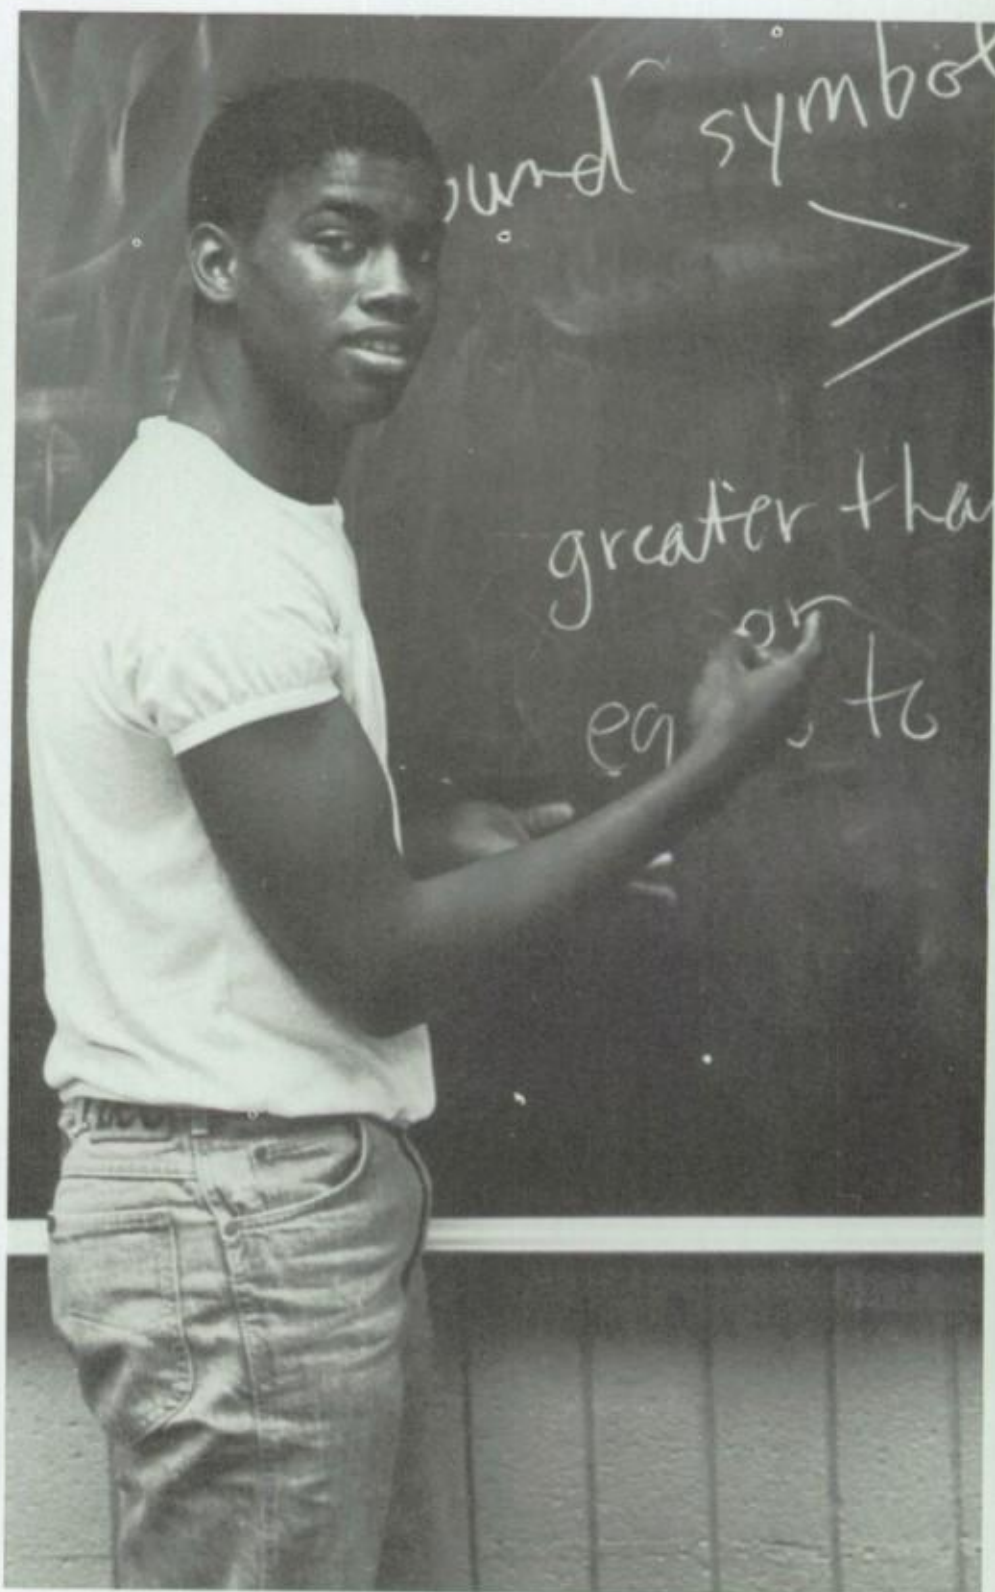 ound symbol
≥
greater tha
or
eq to